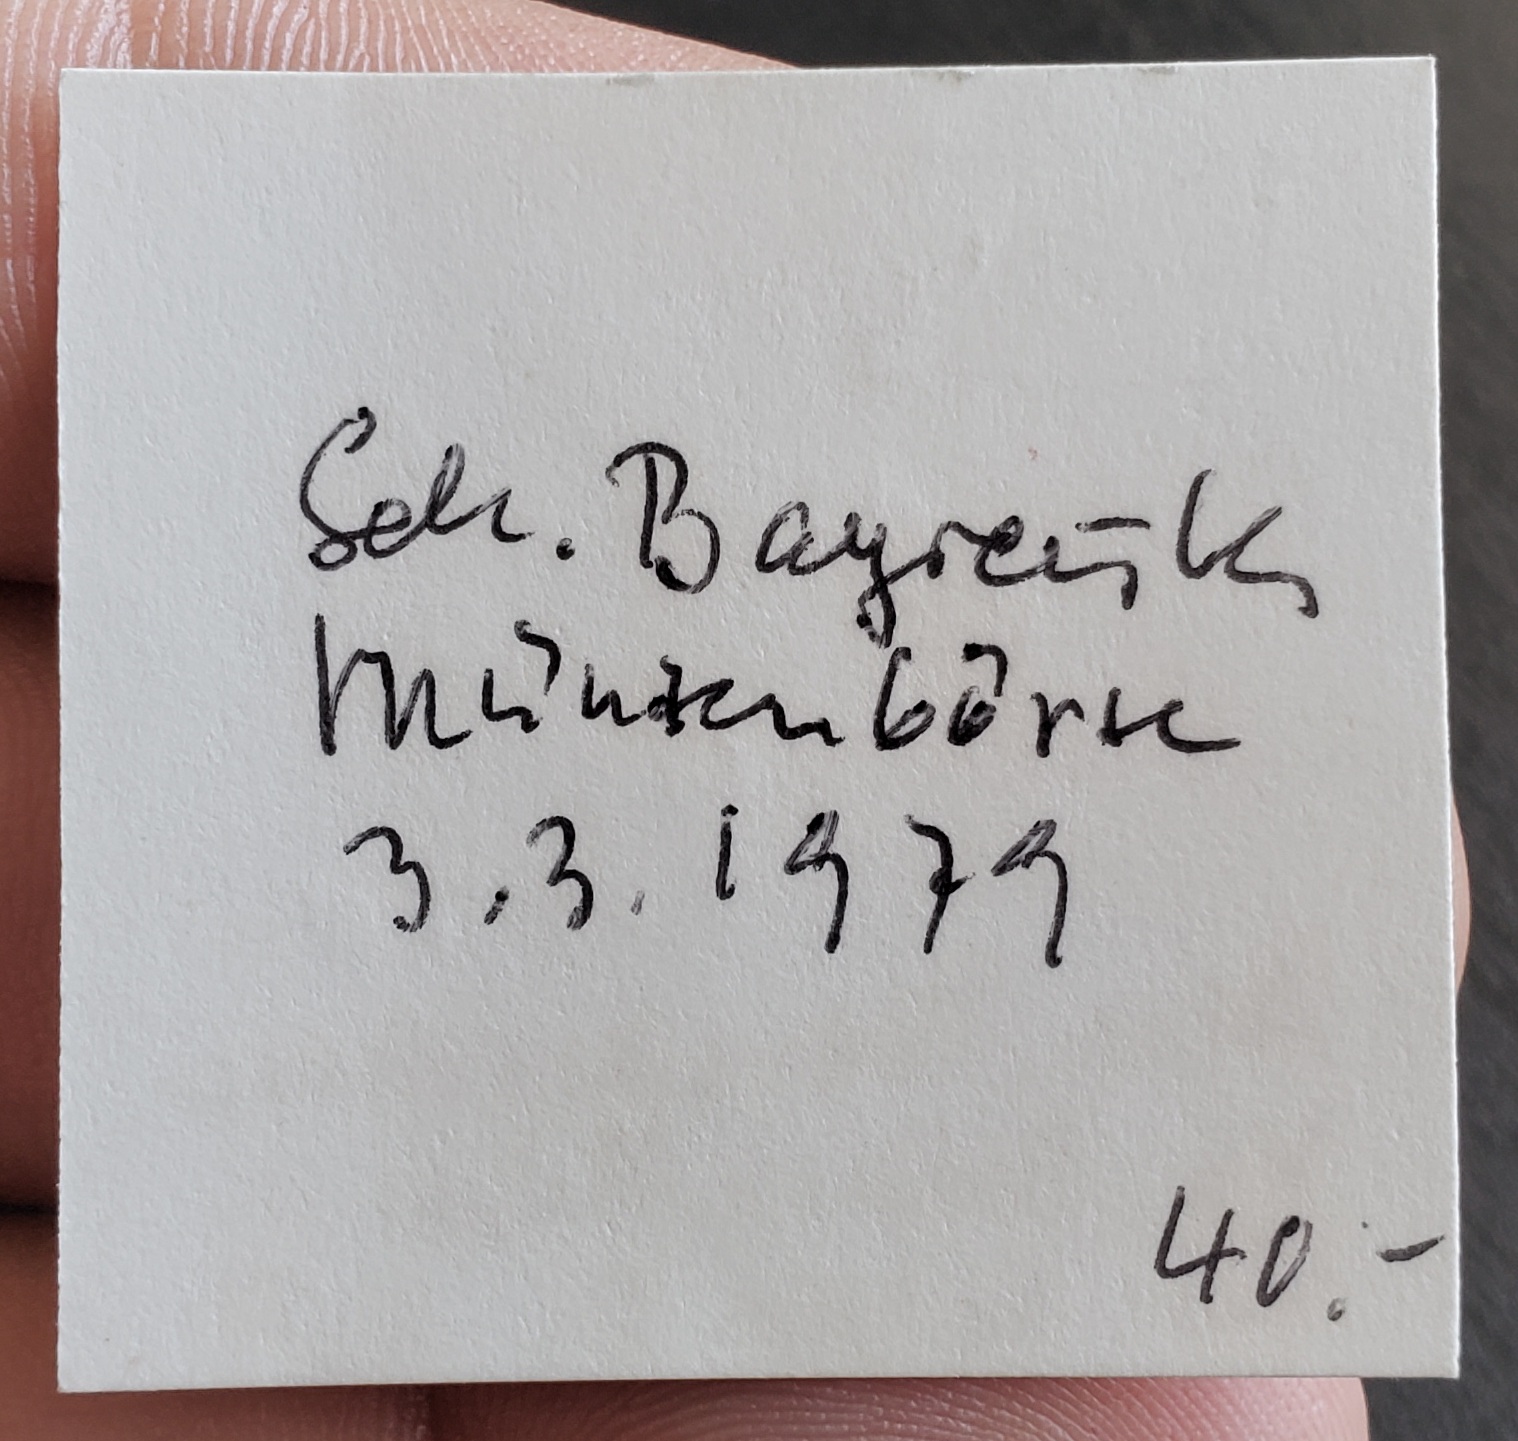 Bayreuth,
Münzenbörse
3.3.1979
40.-